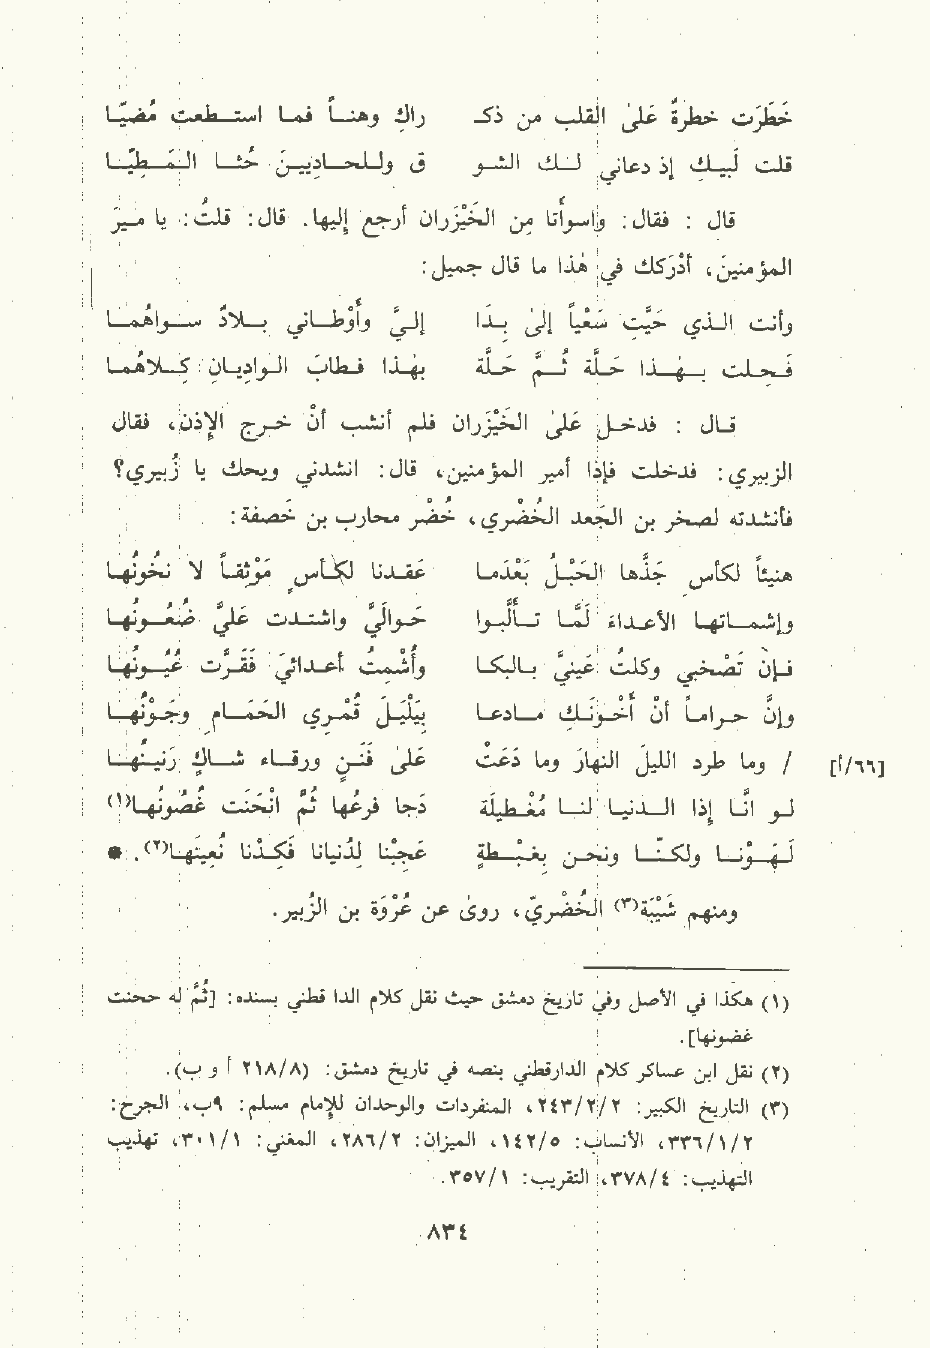 خَطَرَت خطرةٌ علىٰ القلب من ذكـ راك وهنـاً فما استـطعت مُضيّـا
قلت لَبيـك إذ دعاني لـك الشـو ق وللحـاديـينَ حُثـا المَـطيّـا
قال : فقال: واسوأتا من الخَيْزران أرجع إليها. قال: قلتُ: يا ميرَ
المؤمنينَ، أدْكرك في هٰذا ما قال جميل:
وأنت الذي حَيّيتِ شَعْباً إلى بَدا إليّ وأوْطاني بـلادٌ سـواهُما
فَحلت بهـذا حَلّة ثُـمّ حَلّة بهٰذا فطابَ الواديـانِ كـلاهُما
قـال : فدخـل علىٰ الخَيْزران فلم أنشب أن خرج الإذن، فقال
الزبيري: فدخلت فإذا أمير المؤمنين، قال: انشدني ويحك يا زُبيري؟
فأنشدته لصخر بن الجعد الخُضْري، خُضْر محارب بن خَصفة:
هنيئاً لكأس جَذّها الحَبْـلُ بَعْدَما عَقدنا لكأس مَوْثِقاً لا نخُونُها
وإشمـاتها الأعداء لَمّا تـألَّبوا حَواليّ واشتدت عليّ ضُغونُها
فـإن تَصْبحي وكلتُ عَينيّ بالبكا وأشْمتُ أعدائيَ فَقَرّت عُيونُها
وإنّ حراماً أن أخُونـك مادعا بيَلْيَلَ قُمْري الحَمَام وجَوْنُها
[٦٦/أ] / وما طرد الليل النهارَ وما دَعَتْ علىٰ فَنَنٍ ورقاء شـاكٍ رَنينُها
لـو انّا إذا الدنيا لنا مُطْيَلة دَجا فرعُها ثُمّ انْحَنت غُصُونُها(١)
لَهَـوْنـا ولكنّا ونحن بغـبْطةٍ عَجِبْنا لدُنيانا فَكـدْنا نُعينَها(٢). *
ومنهم شَبيْبَة(٣) الخُضْريّ، روىٰ عن عُرْوَة بن الزُبير.
(١) هكذا في الأصل وفي تاريخ دمشق حيث نقل كلام الدا قطني بسنده: [ثُمّ له جحنت
غضونها].
(٢) نقل ابن عساكر كلام الدارقطني بنصه في تاريخ دمشق: (٢١٨/٨ أ و ب).
(٣) التاريخ الكبير: ٢٤٣/٢/٢، المنفردات والوحدان للإمام مسلم: ٩ب، الجرح:
٣٣٦/١/٢، الأنساب: ١٤٢/٥، الميزان: ٢٨٦/٢، المغني: ٣٠١/١، تهذيب
التهذيب: ٣٧٨/٤، التقريب: ٣٥٧/١.
٨٣٤